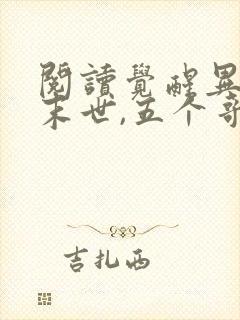 閱讀覺醒異
末世,五个哥
吉扎西